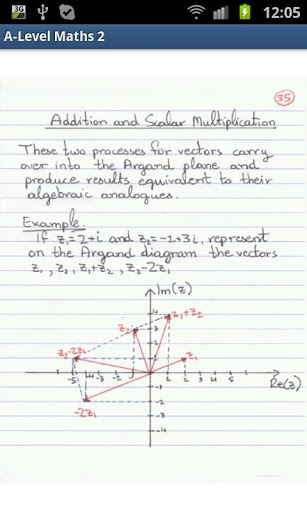 12:05
A-Level Maths 2
35
Addition and Scalar Multiplication
These two processes for vectors carry
over into the Argand plane and
produce results equivalent to their
algebraic analogues.
Example.
If z₁=2+i and z₂=-1+3i, represent
on the Argand diagram the vectors
z₁, z₂, z₁+z₂, z₂-2z₁
Im(z)
4
z₁+z₂
z₂
3
z₂-2z₁
z₁
1
-5 -4 -3 -2 -1 1 2 3 4 5
Re(z)
-1
-2z₁
-2
-3
-4